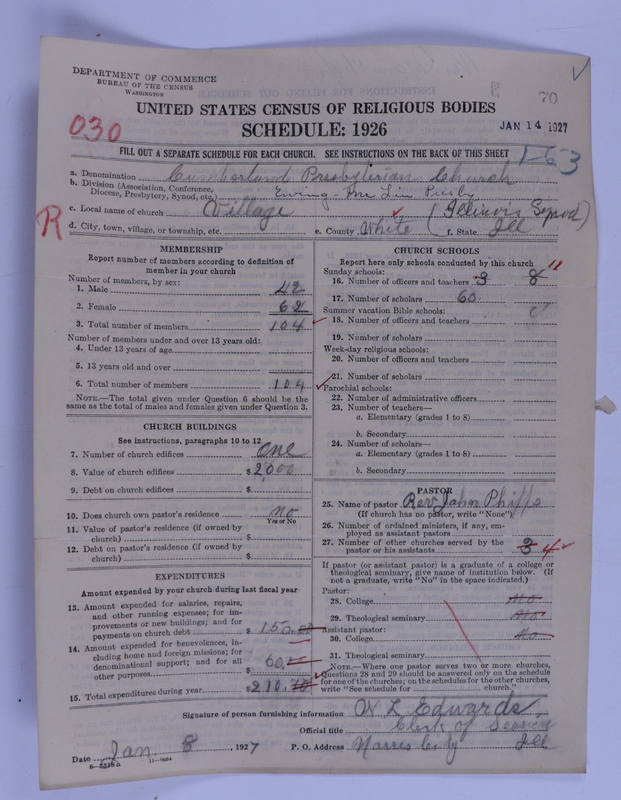 DEPARTMENT OF COMMERCE
BUREAU OF THE CENSUS
WASHINGTON
70
UNITED STATES CENSUS OF RELIGIOUS BODIES
030
SCHEDULE: 1926
JAN 14 1927
FILL OUT A SEPARATE SCHEDULE FOR EACH CHURCH. SEE INSTRUCTIONS ON THE BACK OF THIS SHEET
1-63
a. Denomination Cumberland Presbyterian Church
b. Division (Association, Conference, Diocese, Presbytery, Synod, etc.) Ewing-Mc Lin Presby
c. Local name of church Village (Illinois Synod)
R
d. City, town, village, or township, etc. e. County White f. State Ill
MEMBERSHIP
Report number of members according to definition of
member in your church
Number of members, by sex:
1. Male 42
2. Female 62
3. Total number of members 104
Number of members under and over 13 years old:
4. Under 13 years of age
5. 13 years old and over
6. Total number of members 104
NOTE.—The total given under Question 6 should be the
same as the total of males and females given under Question 3.
CHURCH BUILDINGS
See instructions, paragraphs 10 to 12
7. Number of church edifices One
8. Value of church edifices $ 2000
9. Debt on church edifices $
10. Does church own pastor's residence? No
Yes or No
11. Value of pastor's residence (if owned by
church) $
12. Debt on pastor's residence (if owned by
church) $
EXPENDITURES
Amount expended by your church during last fiscal year
13. Amount expended for salaries, repairs,
and other running expenses; for im-
provements or new buildings; and for
payments on church debt $ 150.00
14. Amount expended for benevolences, in-
cluding home and foreign missions; for
denominational support; and for all
other purposes 60
15. Total expenditures during year $ 210
CHURCH SCHOOLS
Report here only schools conducted by this church
Sunday schools:
16. Number of officers and teachers 3 8 11
17. Number of scholars 60
Summer vacation Bible schools:
18. Number of officers and teachers
19. Number of scholars
Week-day religious schools:
20. Number of officers and teachers
21. Number of scholars
Parochial schools:
22. Number of administrative officers
23. Number of teachers—
a. Elementary (grades 1 to 8)
b. Secondary
24. Number of scholars—
a. Elementary (grades 1 to 8)
b. Secondary
PASTOR
25. Name of pastor Rev. John Phipps
(If church has no pastor, write "None")
26. Number of ordained ministers, if any, em-
ployed as assistant pastors
27. Number of other churches served by the
pastor or his assistants 3 4
If pastor (or assistant pastor) is a graduate of a college or
theological seminary, give name of institution below. (If
not a graduate, write "No" in the space indicated.)
Pastor:
28. College No
29. Theological seminary No
Assistant pastor:
30. College No
31. Theological seminary
NOTE.—Where one pastor serves two or more churches,
Questions 28 and 29 should be answered only on the schedule
for one of the churches; on the schedules for the other churches,
write "See schedule for church."
Signature of person furnishing information W L Edwards
Official title Clerk of Session
Date Jan. 8, 1927 P. O. Address Norris City Ill
8-2518a 11-9084